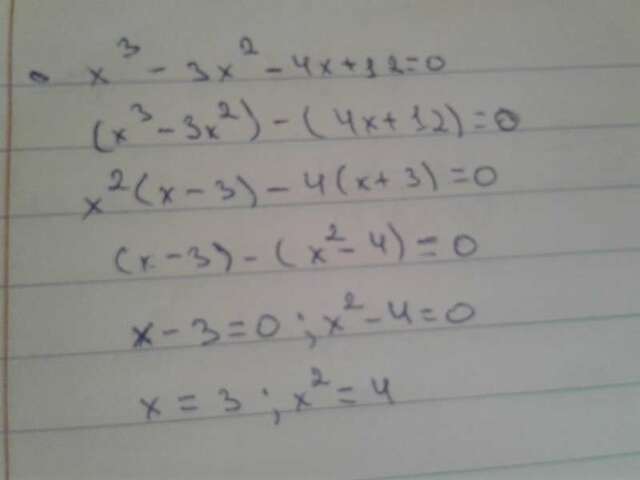 • x³ - 3x² - 4x+12=0
(x³ - 3x²) - (4x+12)=0
x²(x-3) - 4(x+3)=0
(x-3) - (x²-4)=0
x-3=0 ; x²-4=0
x=3 ; x²=4